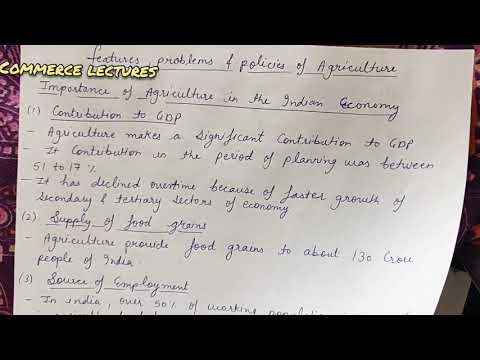 features, problems & policies of Agriculture
COMMERCE LECTURES
Importance of Agriculture in the Indian Economy
(1) Contribution to GDP
- Agriculture makes a Significant Contribution to GDP
- It Contribution in the period of planning was between
51 to 17 %
- It has declined overtime because of faster growth of
Secondary & tertiary Sectors of economy
(2) Supply of food grains
- Agriculture provide food grains to about 130 Crore
people of India
(3) Source of Employment
- In India, over 50% of working